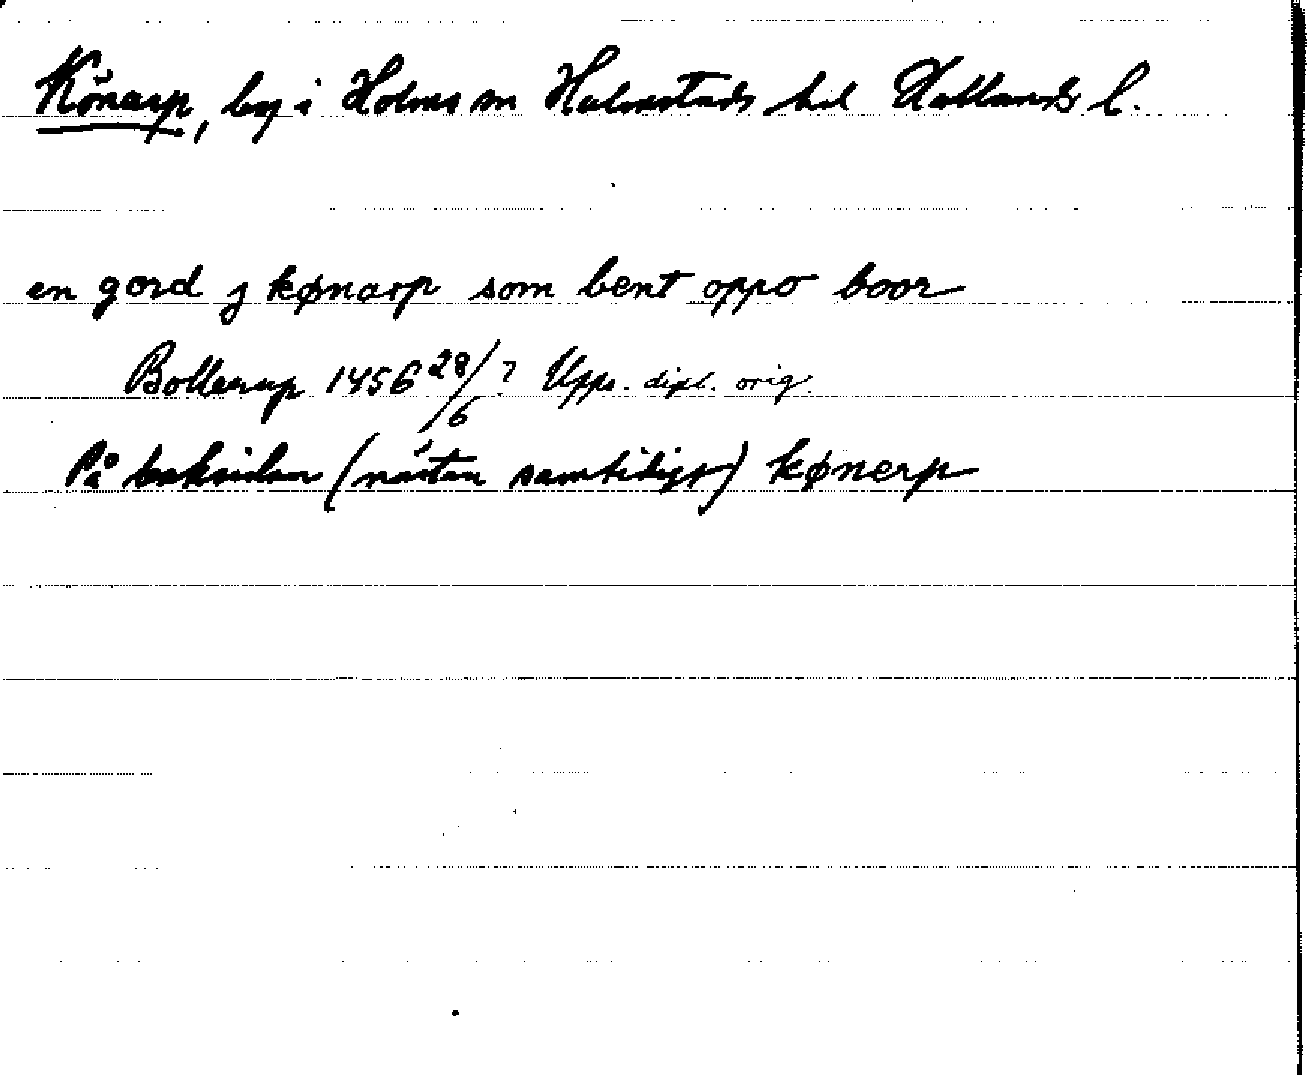 Könarp, by i Holms sn Halmstads hd Hallands l.
en gord j kønarp som bent oppo boor
Bollerup 1456 28/6 ? Upps. dipl. orig.
På baksidan (nästan samtidigt) kønerp